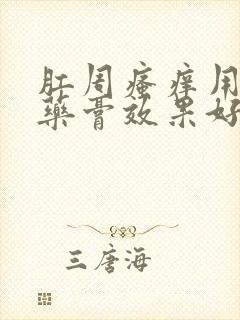 肛周瘙痒用
药膏效果好
三唐海